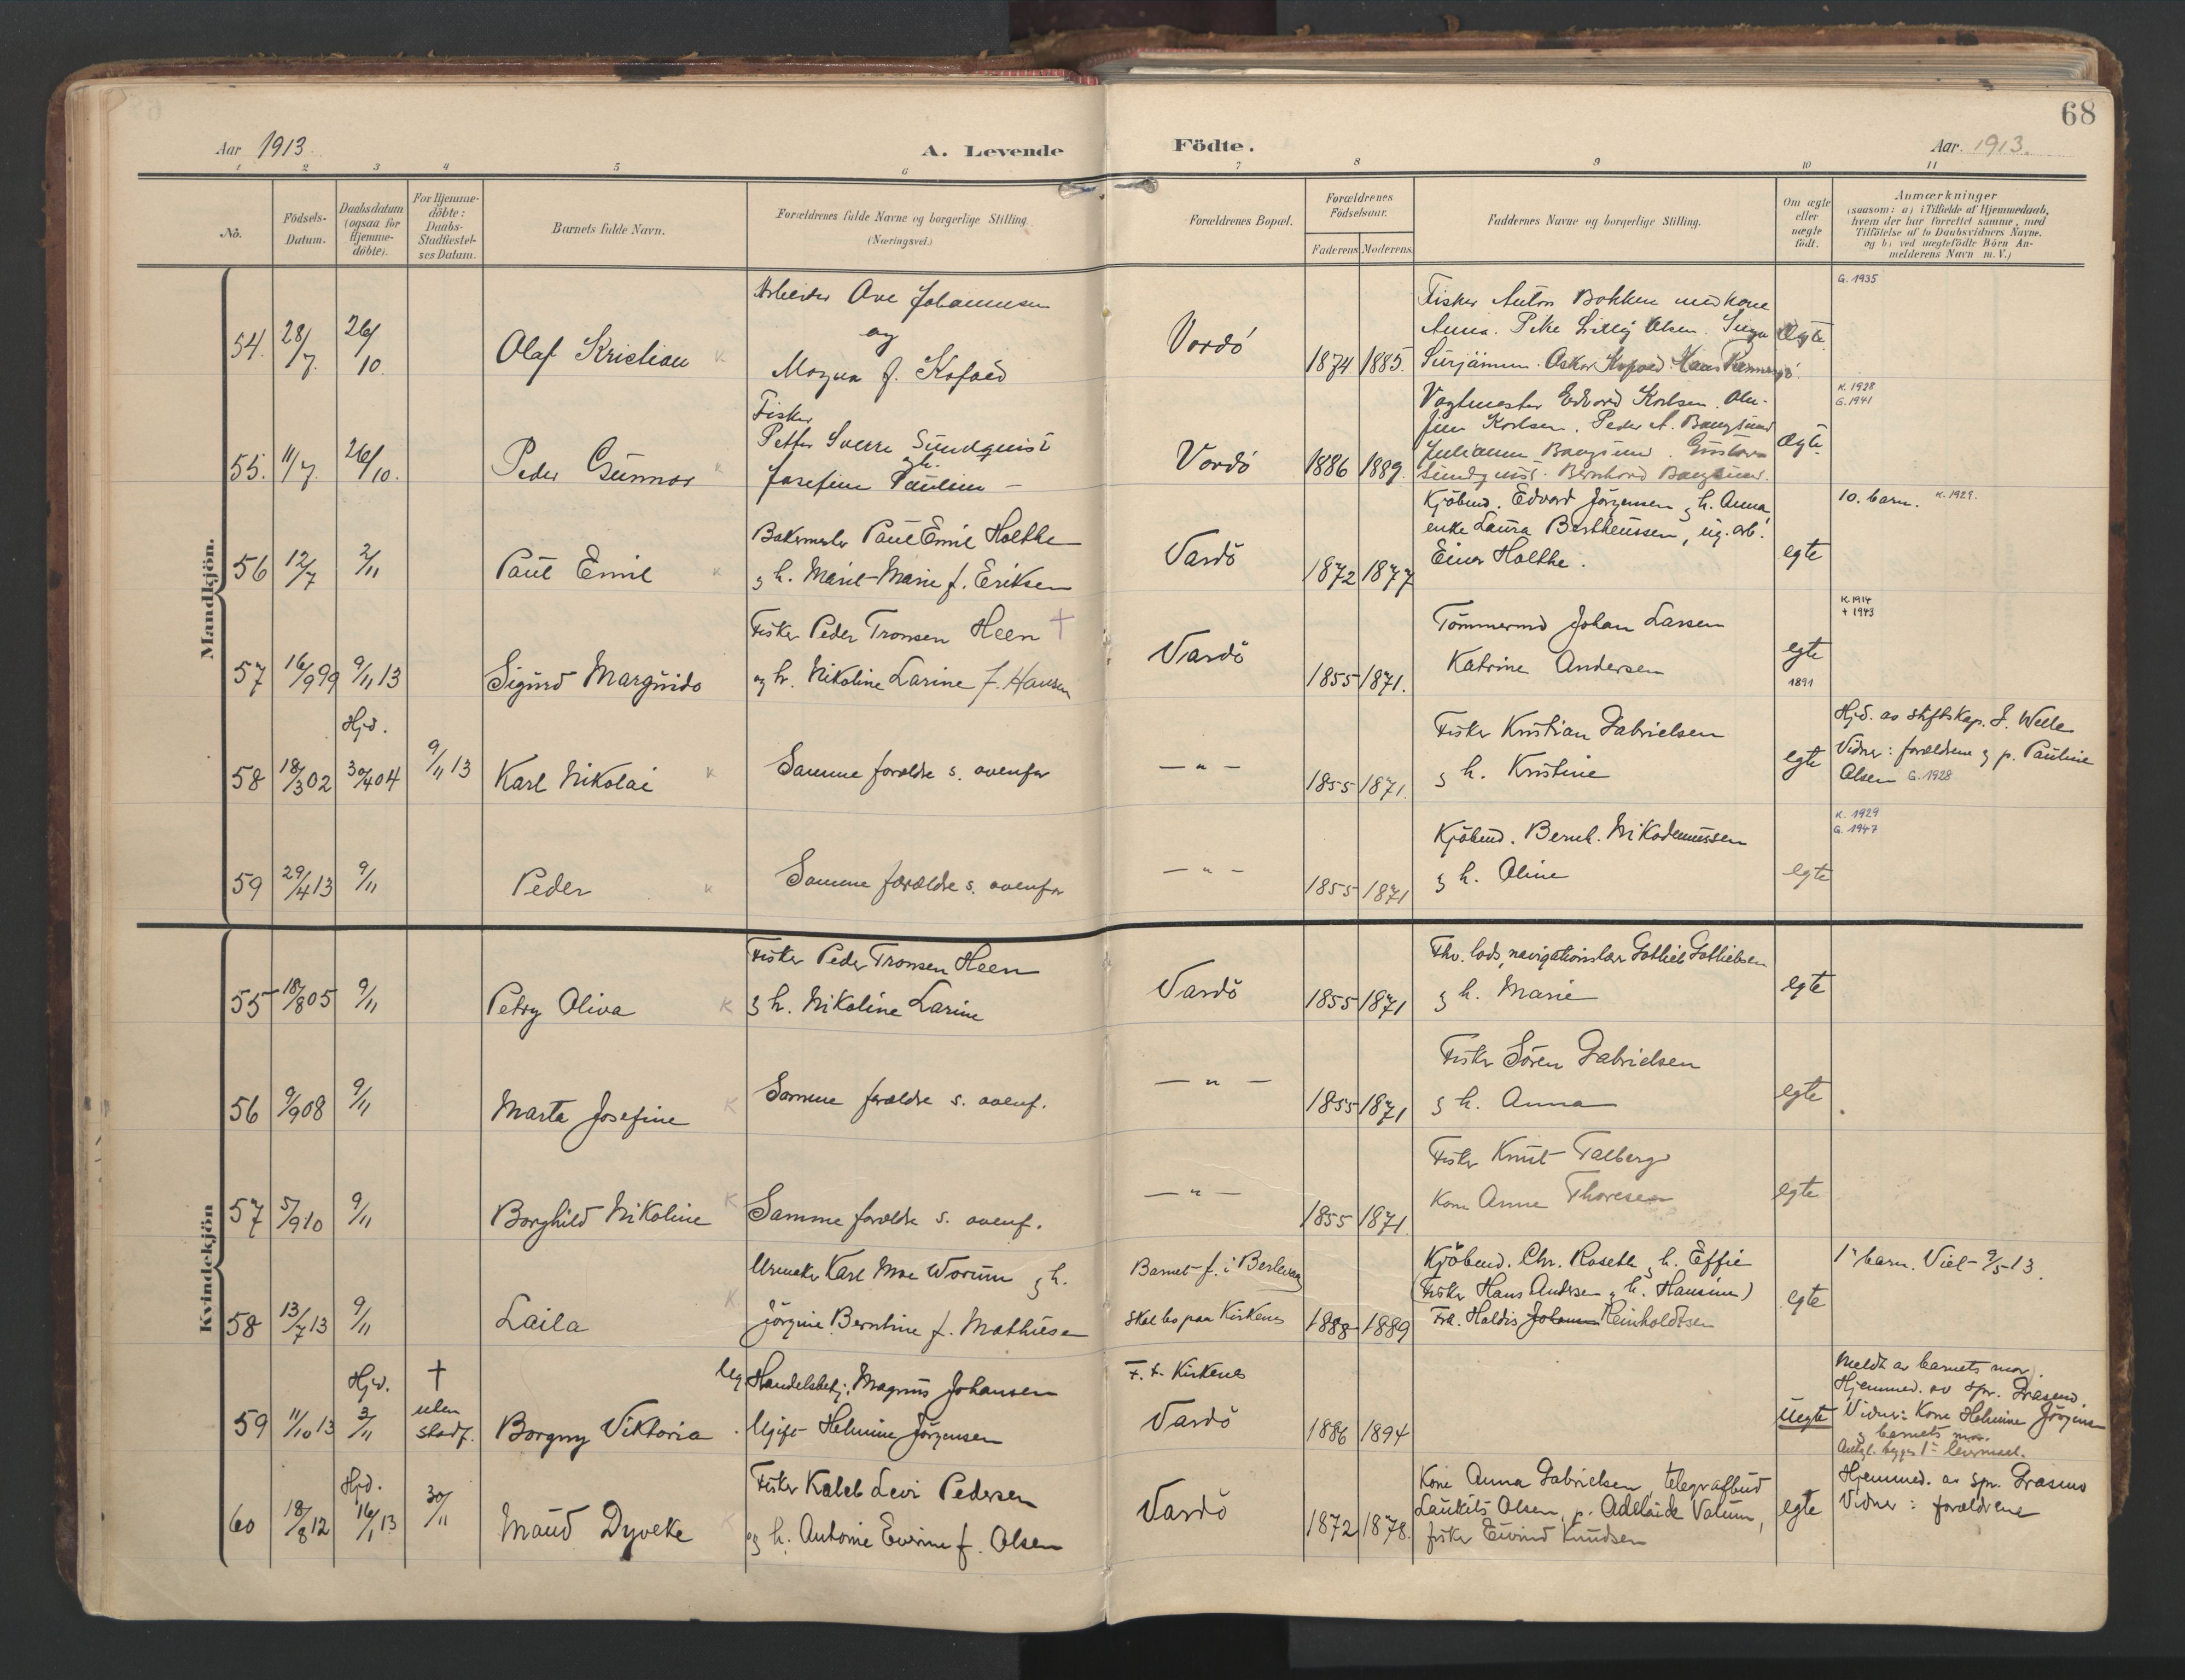 68
Aar 1913.
A. Levende Födte.
Aar. 1913.
1 2 3 4 5 6 7 8 9 10 11
No.
Födsels-
Datum.
Daabsdatum
(ogsaa for
Hjemme-
döbte).
For Hjemme-
döbte:
Daabs-
Stadfæstel-
ses Datum.
Barnets fulde Navn.
Forældrenes fulde Navne og borgerlige Stilling
(Næringsvei.)
Forældrenes Bopæl.
Forældrenes
Födselsaar.
Faderens Moderens
Faddernes Navne og borgerlige Stilling.
Om ægte
eller
uægte
födt.
Anmærkninger
(saasom: a) i Tilfælde af Hjemmedaab,
hvem der har forrettet samme, med
Tilföielse af to Daabsvidners Navne,
og b) ved uægtefödte Börn An-
melderens Navn m. V.)
Mandkjön.
54. 28/7. 26/10. Olaf Kristian
Arbeider Ove Johannesen
og
Magna f. Kofoed
Vardö 1874 1885.
Fisker Anton Bakken med kone
Anna. Pike Lilly Olsen.
Oskar Kofoed. Hans
Ægte.
G. 1935
55. 11/7. 26/10. Peder Gunnar
Fisker
Petter Sverre Sundquist
og h.
Josefine Pauline —
Vardö 1886 1889.
Vagtmester Edvard Karlsen.
Karlsen. Peder A. Bangsund
Julianne Bangsund. Gustava
Sundquist. Bernhard Bangsund.
Ægte
K. 1928
G. 1941
56 12/7 2/11 Paul Emil
Bakermester Paul Emil Holthe
og h. Marit Marie f. Eriksen
Vardö 1872 1877
Kjöbmd. Edvard Jörgensen og h. Anna
enke Laura Bertheussen, ug. arb.
Einar Holthe.
egte
10. barn. K. 1929.
57 16/9 99 9/11 13 Sigurd Margnido
Fisker Peder Tronsen Heen +
og h. Nikoline Larine f. Hansen
Vardö 1855 1871.
Tömmermd Johan Larsen
Katrine Andersen
egte
1891
K. 1914
+ 1943
58 18/3 02 Hjd. 30/4 04 9/11 13 Karl Nikolai
Samme forældre s. ovenfor
— " — 1855 1871.
Fisker Kristian Gabrielsen
og h. Kristine
egte
Hjd. av stiftskap. S. Welle
Vidner: forældrene og p. Pauline
Olsen G. 1928
59 29/4 13 9/11 Peder
Samme forældre s. ovenfor
— " — 1855 1871
Kjöbmd. Bernh. Nikodemussen
og h. Oline
egte
K. 1929
G. 1947
Kvindekjön
55 18/8 05 9/11 Petry Oliva K
Fisker Peder Tronsen Heen
og h. Nikoline Larine
Vardö 1855 1871
Fhv. lods, navigationslær. Gotlieb Gotliebsen
og h. Marie
egte
56 9/9 08 9/11 Marta Josefine K
Samme forældre s. ovenf.
— " — 1855 1871
Fisker Sören Gabrielsen
og h. Anna
egte
57 5/9 10 9/11 Borghild Nikoline K
Samme forældre s. ovenf.
— " — 1855 1871.
Fisker Knut Talberg
Kone Anne Thoresen
egte
58 13/7 13 9/11 Laila K
Urmaker Karl Moe Worum og h.
Jörgine Berntine f. Mathiesen
Barnet f. i Berlevaag
Skal bo paa Kirkenes 1888 1889
Kjöbmd. Chr. Roseth og h. Effie
(Fisker Hans Andersen og h. Hansine)
Frk. Haldis Johanne Reinholdtsen
egte
1ste barn. Viet 9/5 13.
59 11/10 13 Hjd. 3/11 † uten stadf. Borgny Viktoria
Ug. Handelsbetj. Magnus Johansen
Ugift Helmine Jörgensen
F. t. Kirkenes
Vardö 1886 1894
Uegte
Meldt av barnets mor
Hjemmed. av spr. Grasmo.
Vidner: Kone Helmine Jörgensen
og barnets mor.
begges 1ste leiermaal.
60 18/8 12 Hjd. 16/1 13 30/11 Maud Dyveke
Fisker Kaleb Levi Pedersen
og h. Antonie Evrine f. Olsen
Vardö 1872 1878.
Kone Anna Gabrielsen, telegrafbud
Laurits Olsen, p. Adelaide Valum,
fisker Eivind Knudsen
egte
Hjemmed. av spr. Grasmo
Vidner: forældrene